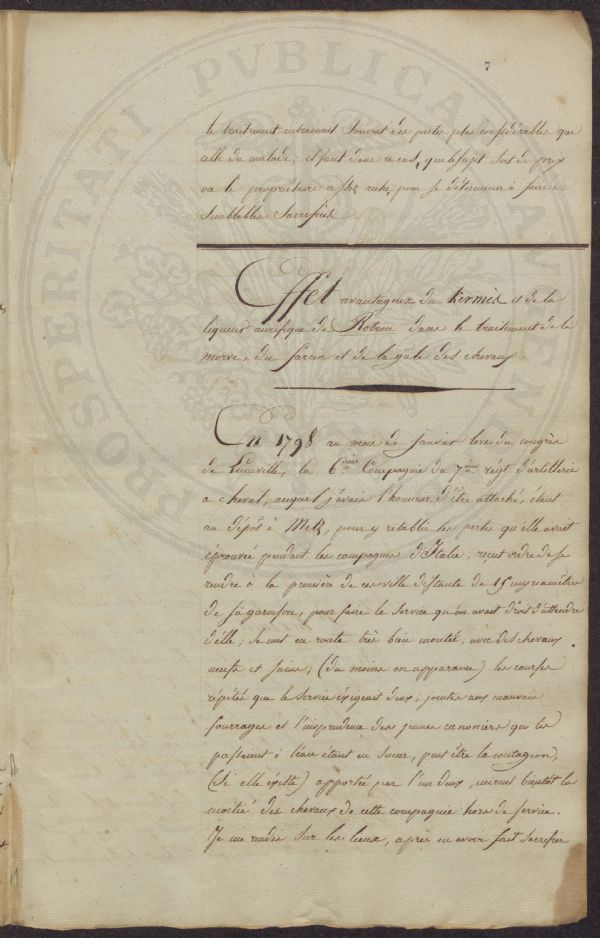 7
PROSPERITATI PVBLICAE AVGENDAE
le traitement entrainant souvent des pertes plus considérables que
celle du malade; il faut donc en cas, que le sujet soit de prix
ou le propriétaire assez riche, pour se déterminer à faire de
semblables sacrifices
Effet avantageux du Kermès et de la
liqueur aurifique de Rotrou dans le traitement de la
morve, du farcin et de la gale des chevaux.
En 1798 au mois de janvier lors du congrès
de Luneville, la 6eme Compagnie du 7eme régt d'artillerie
a cheval, auquel j'avais l'honneur d'être attaché, étant
au dépôt à Metz, pour y retablir les pertes qu'elle avait
éprouvée pendant les campagnes d'Italie, reçut ordre de se
rendre à la première de ces ville distante de 15 myriamètres
de sa garnison, pour faire le service qu'on avait droit d'attendre
d'elle; se mit en route très bien montée, avec des chevaux
neufs et sains; (du moins en apparance) les courses
répétés que le service éxigeait d'eux; jointes aux mauvais
fourrages et l'imprudence des jeunes canoniers qui les
passaient à l'eau étant en sueur, peut être la contagion,
(si elle éxiste) apportée par l'un d'eux, mirent bientôt la
moitié des chevaux de cette compagnie hors de service.
Je me rendis sur les lieux, après en avoir fait sacrifier